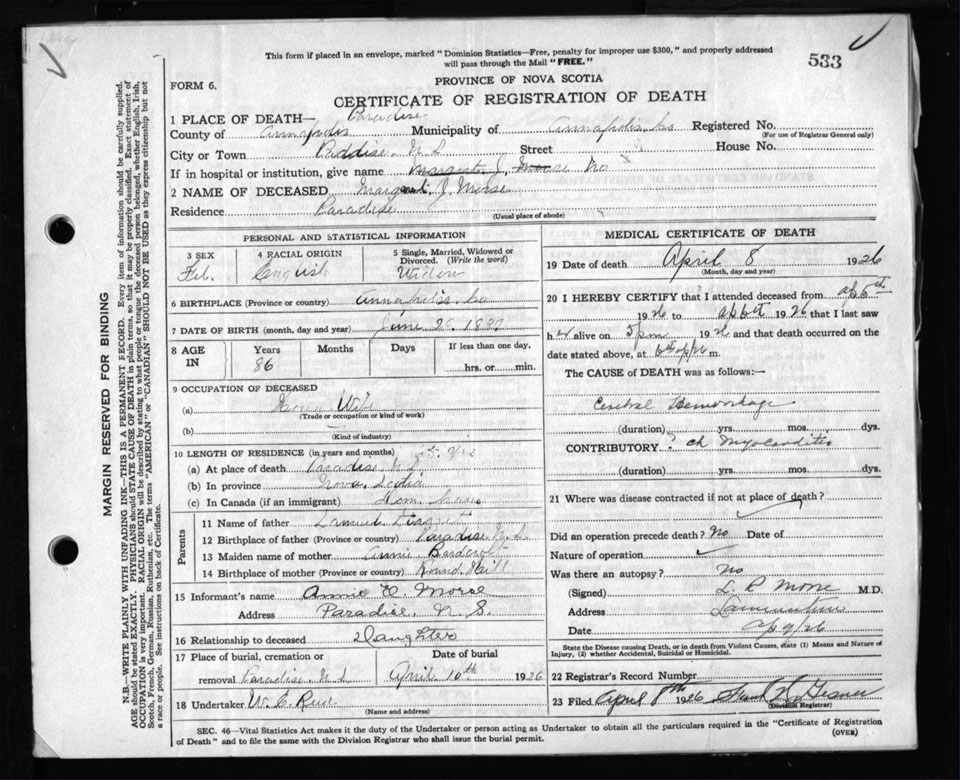 This form if placed in an envelope, marked "Dominion Statistics—Free, penalty for improper use $300," and properly addressed
will pass through the Mail "FREE."
533
FORM 6.
PROVINCE OF NOVA SCOTIA
CERTIFICATE OF REGISTRATION OF DEATH
1 PLACE OF DEATH— Paradise
County of Annapolis Municipality of Annapolis Registered No.
(For use of Registrar General only)
City or Town N S Street House No.
If in hospital or institution, give name Margaret J. Morse No
2 NAME OF DECEASED Margaret J. Morse
Residence Paradise
(Usual place of abode)
PERSONAL AND STATISTICAL INFORMATION
3 SEX 4 RACIAL ORIGIN 5 Single, Married, Widowed or Divorced. (Write the word)
English Widow
6 BIRTHPLACE (Province or country) Annapolis Co
7 DATE OF BIRTH (month, day and year) June
8 AGE IN Years Months Days If less than one day,
86 hrs. or min.
9 OCCUPATION OF DECEASED
(a) Wife
(Trade or occupation or kind of work)
(b)
(Kind of industry)
10 LENGTH OF RESIDENCE (in years and months)
(a) At place of death Paradise N.S.
(b) In province Nova Scotia
(c) In Canada (if an immigrant)
Parents
11 Name of father Samuel
12 Birthplace of father (Province or country) Paradise N.S.
13 Maiden name of mother Annie
14 Birthplace of mother (Province or country) Round Hill
15 Informant's name Annie E. Morse
Address Paradise, N. S.
16 Relationship to deceased Daughter
17 Place of burial, cremation or removal Date of burial
Paradise N S April 10th 1926
18 Undertaker W. C.
(Name and address)
MEDICAL CERTIFICATE OF DEATH
19 Date of death April 8 1926
(Month, day and year)
20 I HEREBY CERTIFY that I attended deceased from Ap 5th
1926 to 1926 that I last saw
her alive on 5 pm 1926 and that death occurred on
date stated above, at m.
The CAUSE of DEATH was as follows:—
Cerebral Hemorrhage
(duration) yrs. mos. dys.
CONTRIBUTORY ? ch Myocarditis
(duration) yrs. mos. dys.
21 Where was disease contracted if not at place of death?
Did an operation precede death? No Date of
Nature of operation
Was there an autopsy? No
(Signed) L. R. Morse M.D.
Address Lawrencetown
Date Ap 9/26
State the Disease causing Death, or in death from Violent Causes, state (1) Means and Nature of
Injury, (2) whether Accidental, Suicidal or Homicidal.
22 Registrar's Record Number
23 Filed April 1926
(Division Registrar)
SEC. 46—Vital Statistics Act makes it the duty of the Undertaker or person acting as Undertaker to obtain all the particulars required in the "Certificate of Registration
of Death" and to file the same with the Division Registrar who shall issue the burial permit.
(OVER)
MARGIN RESERVED FOR BINDING
N.B.—WRITE PLAINLY WITH UNFADING INK—THIS IS A PERMANENT RECORD. Every item of information should be carefully supplied.
AGE should be stated EXACTLY. PHYSICIANS should STATE CAUSE OF DEATH in plain terms, so that it may be properly classified. Exact statement of
OCCUPATION is very important. RACIAL ORIGIN will be described by stating to what people or tongue the deceased person belonged, whether English, Irish,
Scotch, French, German, Russian, Ruthenian, etc. The terms "AMERICAN" or "CANADIAN" SHOULD NOT BE USED as they express citizenship but not
a race or people. See instructions on back of Certificate.